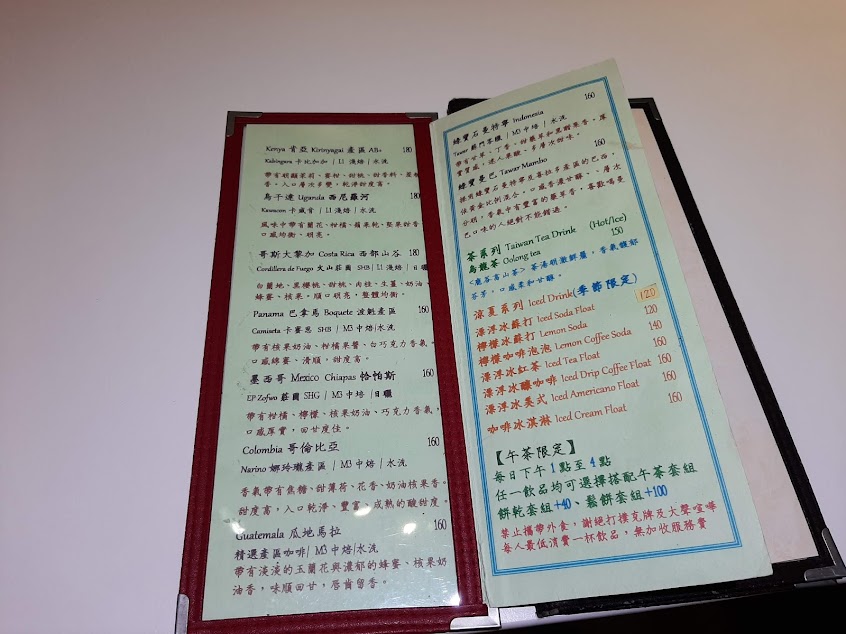 Kenya 肯亞 Kirinyagai 產區 AB+ 180
Kabingara 卡比加加 / L1 淺焙 / 水洗
香。入口層次多變，乾淨甜度高。
烏干達 Uganda 西尼羅河 180
風味中帶有蘭花、柑橘、蘋果乾、堅果甜香
口感均衡、明亮。
哥斯大黎加 Costa Rica 西部山谷 180
Cordillera de Fuego 火山莊園 SHB / L1 淺焙 / 日曬
白蘭地、黑櫻桃、甜桃、肉桂、生薑、奶油、
蜂蜜、核果。順口明亮，整體均衡。
Panama 巴拿馬 Boquete 波魁產區 160
Camiseta 卡蜜思 SHB / M3 中焙/水洗
帶有核果奶油、柑橘果醬、白巧克力香氣。
口感綿蜜、清順、甜度高。
墨西哥 Mexico Chiapas 恰帕斯 160
EP Zofwo 莊園 SHG / M3 中焙 / 日曬
帶有柑橘、檸檬、核果奶油、巧克力香氣。
口感厚實，回甘度佳。
Colombia 哥倫比亞 160
Narino 娜玲瓏產區 / M3 中焙 / 水洗
香氣帶有焦糖、甜薄荷、花香、奶油核果香。
甜度高，入口乾淨、豐富、成熟的酸甜度。
Guatemala 瓜地馬拉 160
精選產區咖啡/ M3 中焙/水洗
帶有淡淡的玉蘭花與濃郁的蜂蜜、核果奶
油香，味順回甘，唇齒留香。
綠寶石曼特寧 Indonesia 160
綠寶曼巴 Tawar Mambo 160
分明，香氣中有豐富的藥草香，喜歡喝曼
巴口味的人絕對不能錯過。
茶系列 Taiwan Tea Drink (Hot/Ice)
烏龍茶 Oolong tea 150
<鹿谷高山茶> 茶湯明澈鮮麗，香氣馥郁
芬芳，口感柔和甘醇。
涼夏系列 Iced Drink(季節限定)
漂浮冰蘇打 Iced Soda Float 120
檸檬冰蘇打 Lemon Soda 120
檸檬咖啡泡泡 Lemon Coffee Soda 140
漂浮冰紅茶 Iced Tea Float 160
漂浮冰釀咖啡 Iced Drip Coffee Float 160
漂浮冰美式 Iced Americano Float 160
咖啡冰淇淋 Iced Cream Float 160
【午茶限定】
每日下午 1 點至 4 點
任一飲品均可選擇搭配午茶套組
餅乾套組+40、鬆餅套組+100
禁止攜帶外食，謝絕打撲克牌及大聲喧嘩
每人最低消費一杯飲品，無加收服務費